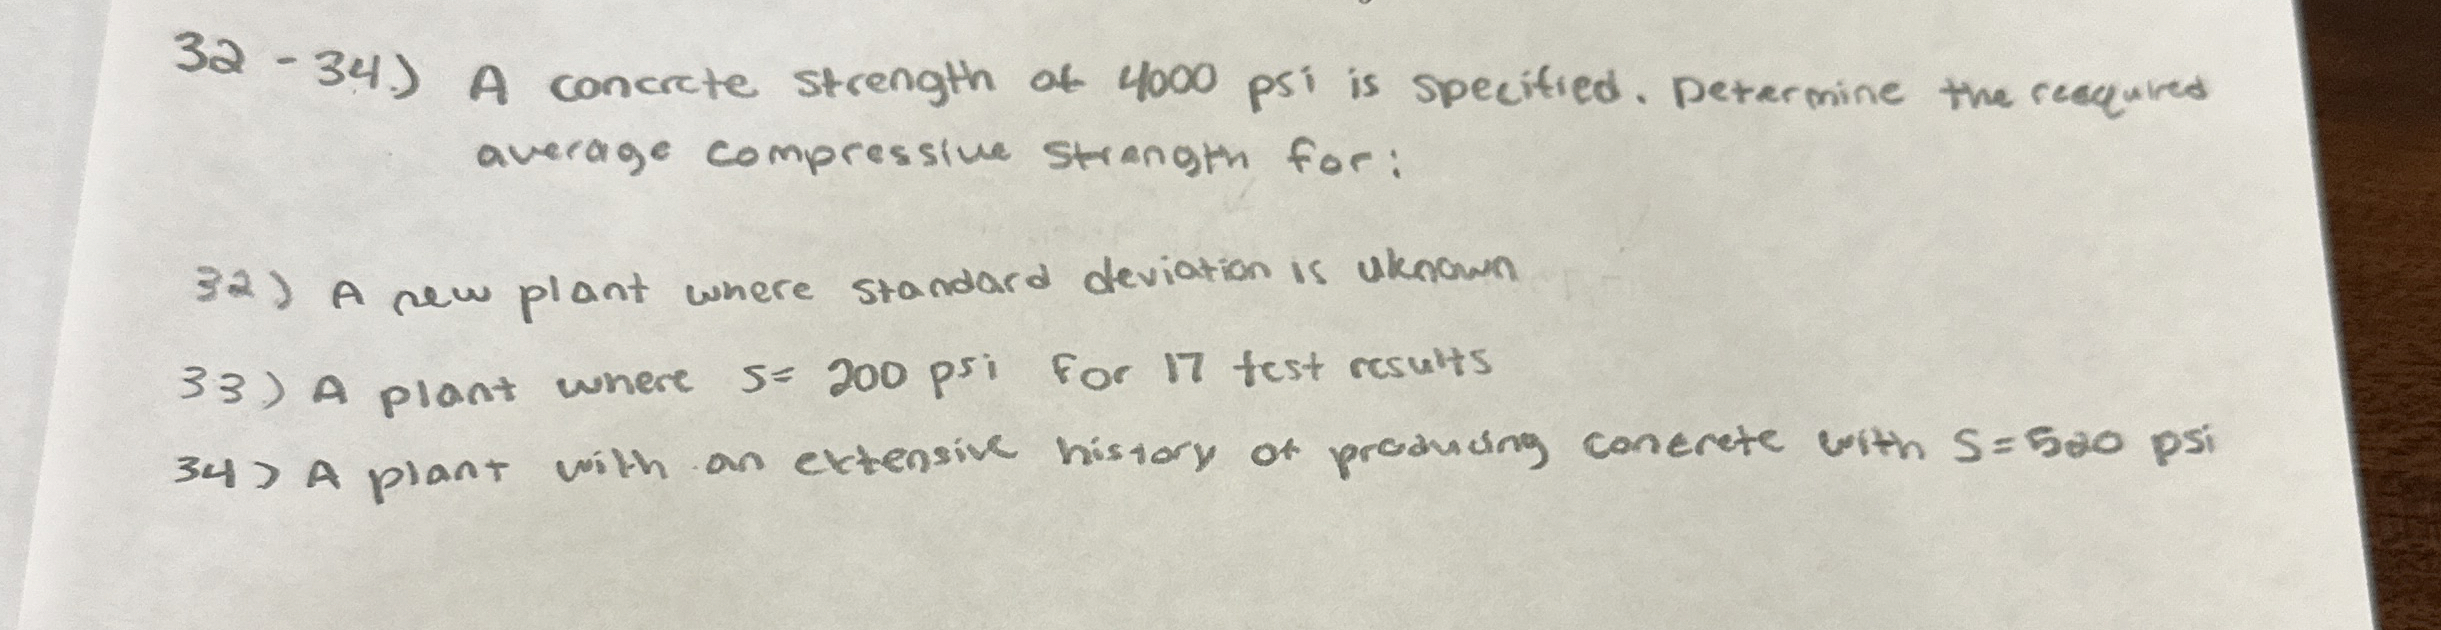 32 - 34.) A concrete strength of 4000 psi is specified. Determine the reequired
average compressive strength for:
32) A new plant where standard deviation is uknown
33) A plant where s= 200 psi for 17 test results
34) A plant with an extensive history of producing concrete with S=520 psi